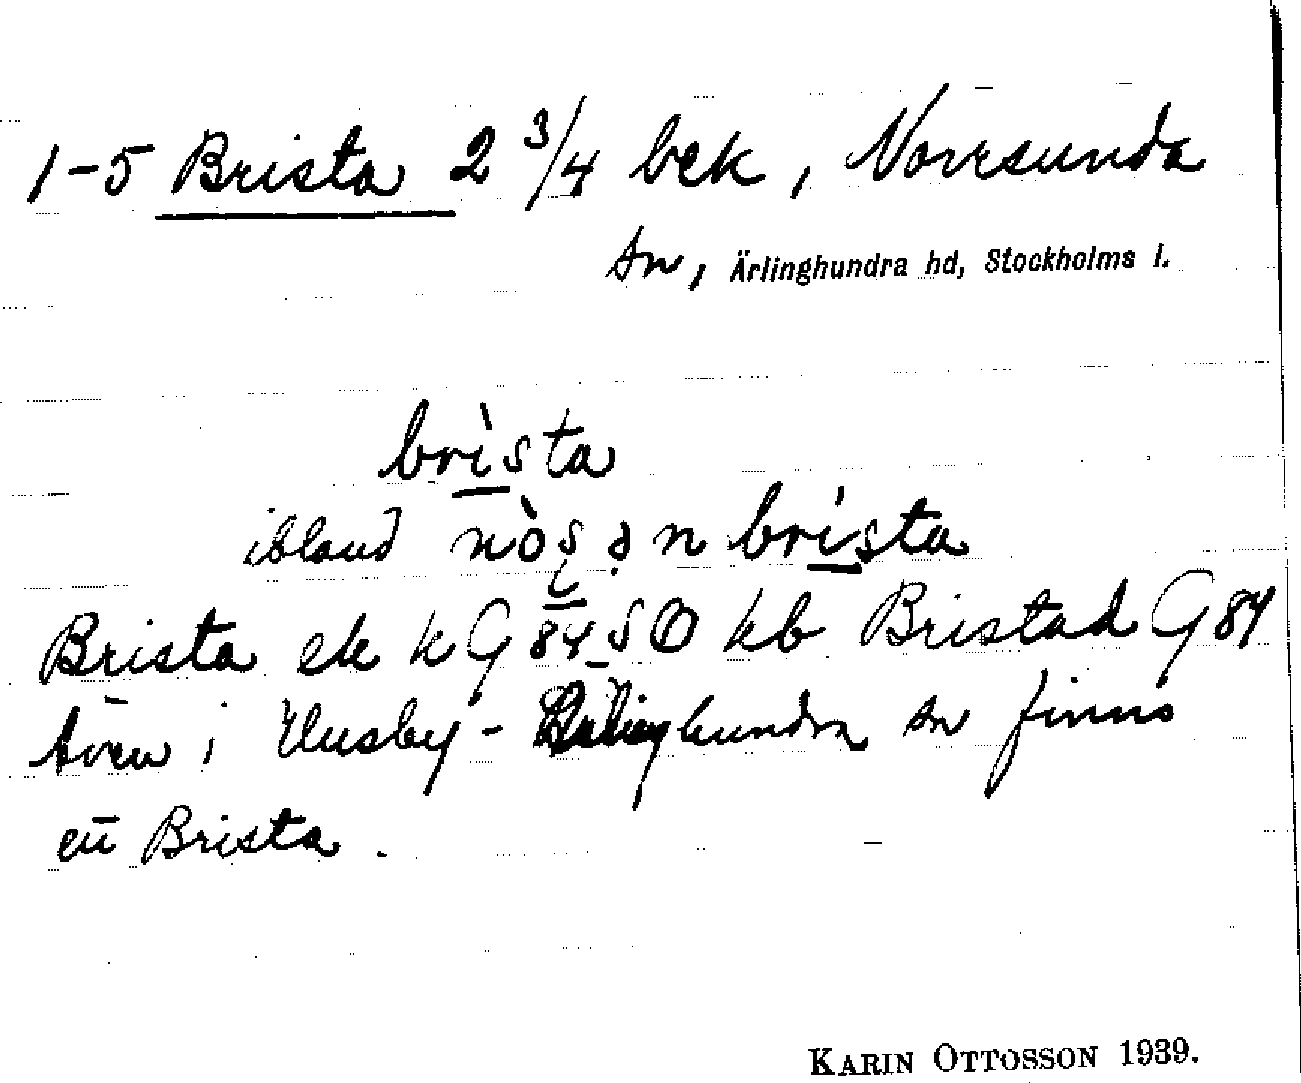 1-5 Brista 2 3/4 bek, Norrsunda
sn, Ärlinghundra hd, Stockholms l.
brìsta
ibland nòṣənbrísta
Brista ek k G 84 S O kb Bristad G 84
Även i Husby-Ärlinghundra sn finns
ett Brista.
KARIN OTTOSSON 1939.